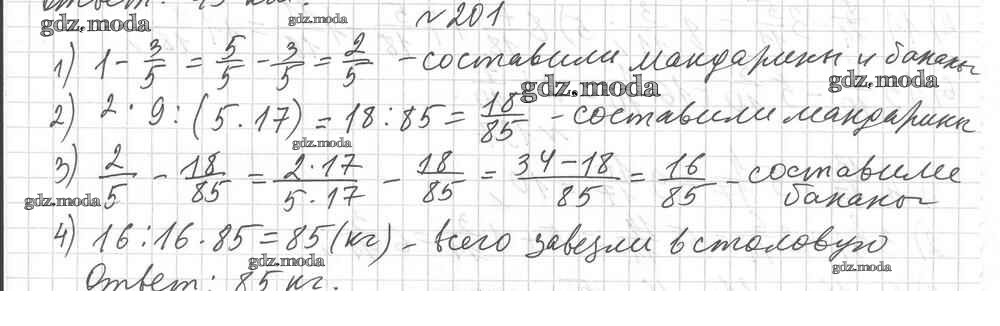 Ответ: 45 кг.
gdz.moda gdz.moda №201
1) 1 - 3/5 = 5/5 - 3/5 = 2/5 - составили мандарины и бананы
gdz.moda gdz.moda
2) 2 · 9 : (5 · 17) = 18 : 85 = 18/85 - составили мандарины
gdz.moda
3) 2/5 - 18/85 = 2·17/5·17 - 18/85 = 34-18/85 = 16/85 - составили
gdz.moda бананы
4) 16 : 16 · 85 = 85 (кг) - всего завезли в столовую
gdz.moda gdz.moda
Ответ: 85 кг.